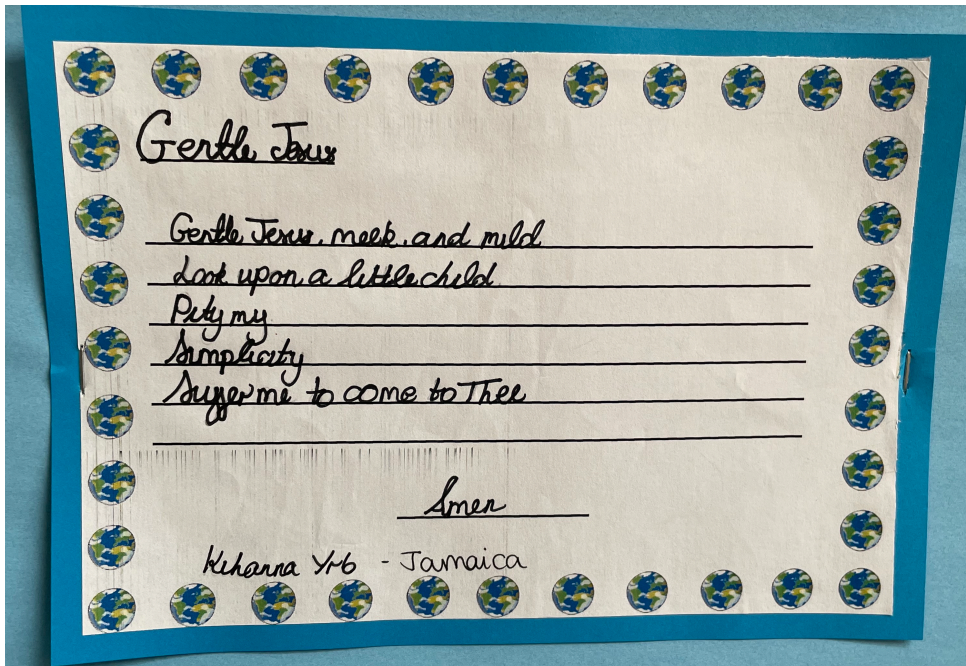 Gentle Jesus
Gentle Jesus, meek, and mild
Look upon a little child
Pity my
Simplicity
Suffer me to come to Thee
Amen
Kihanna Yr6 - Jamaica